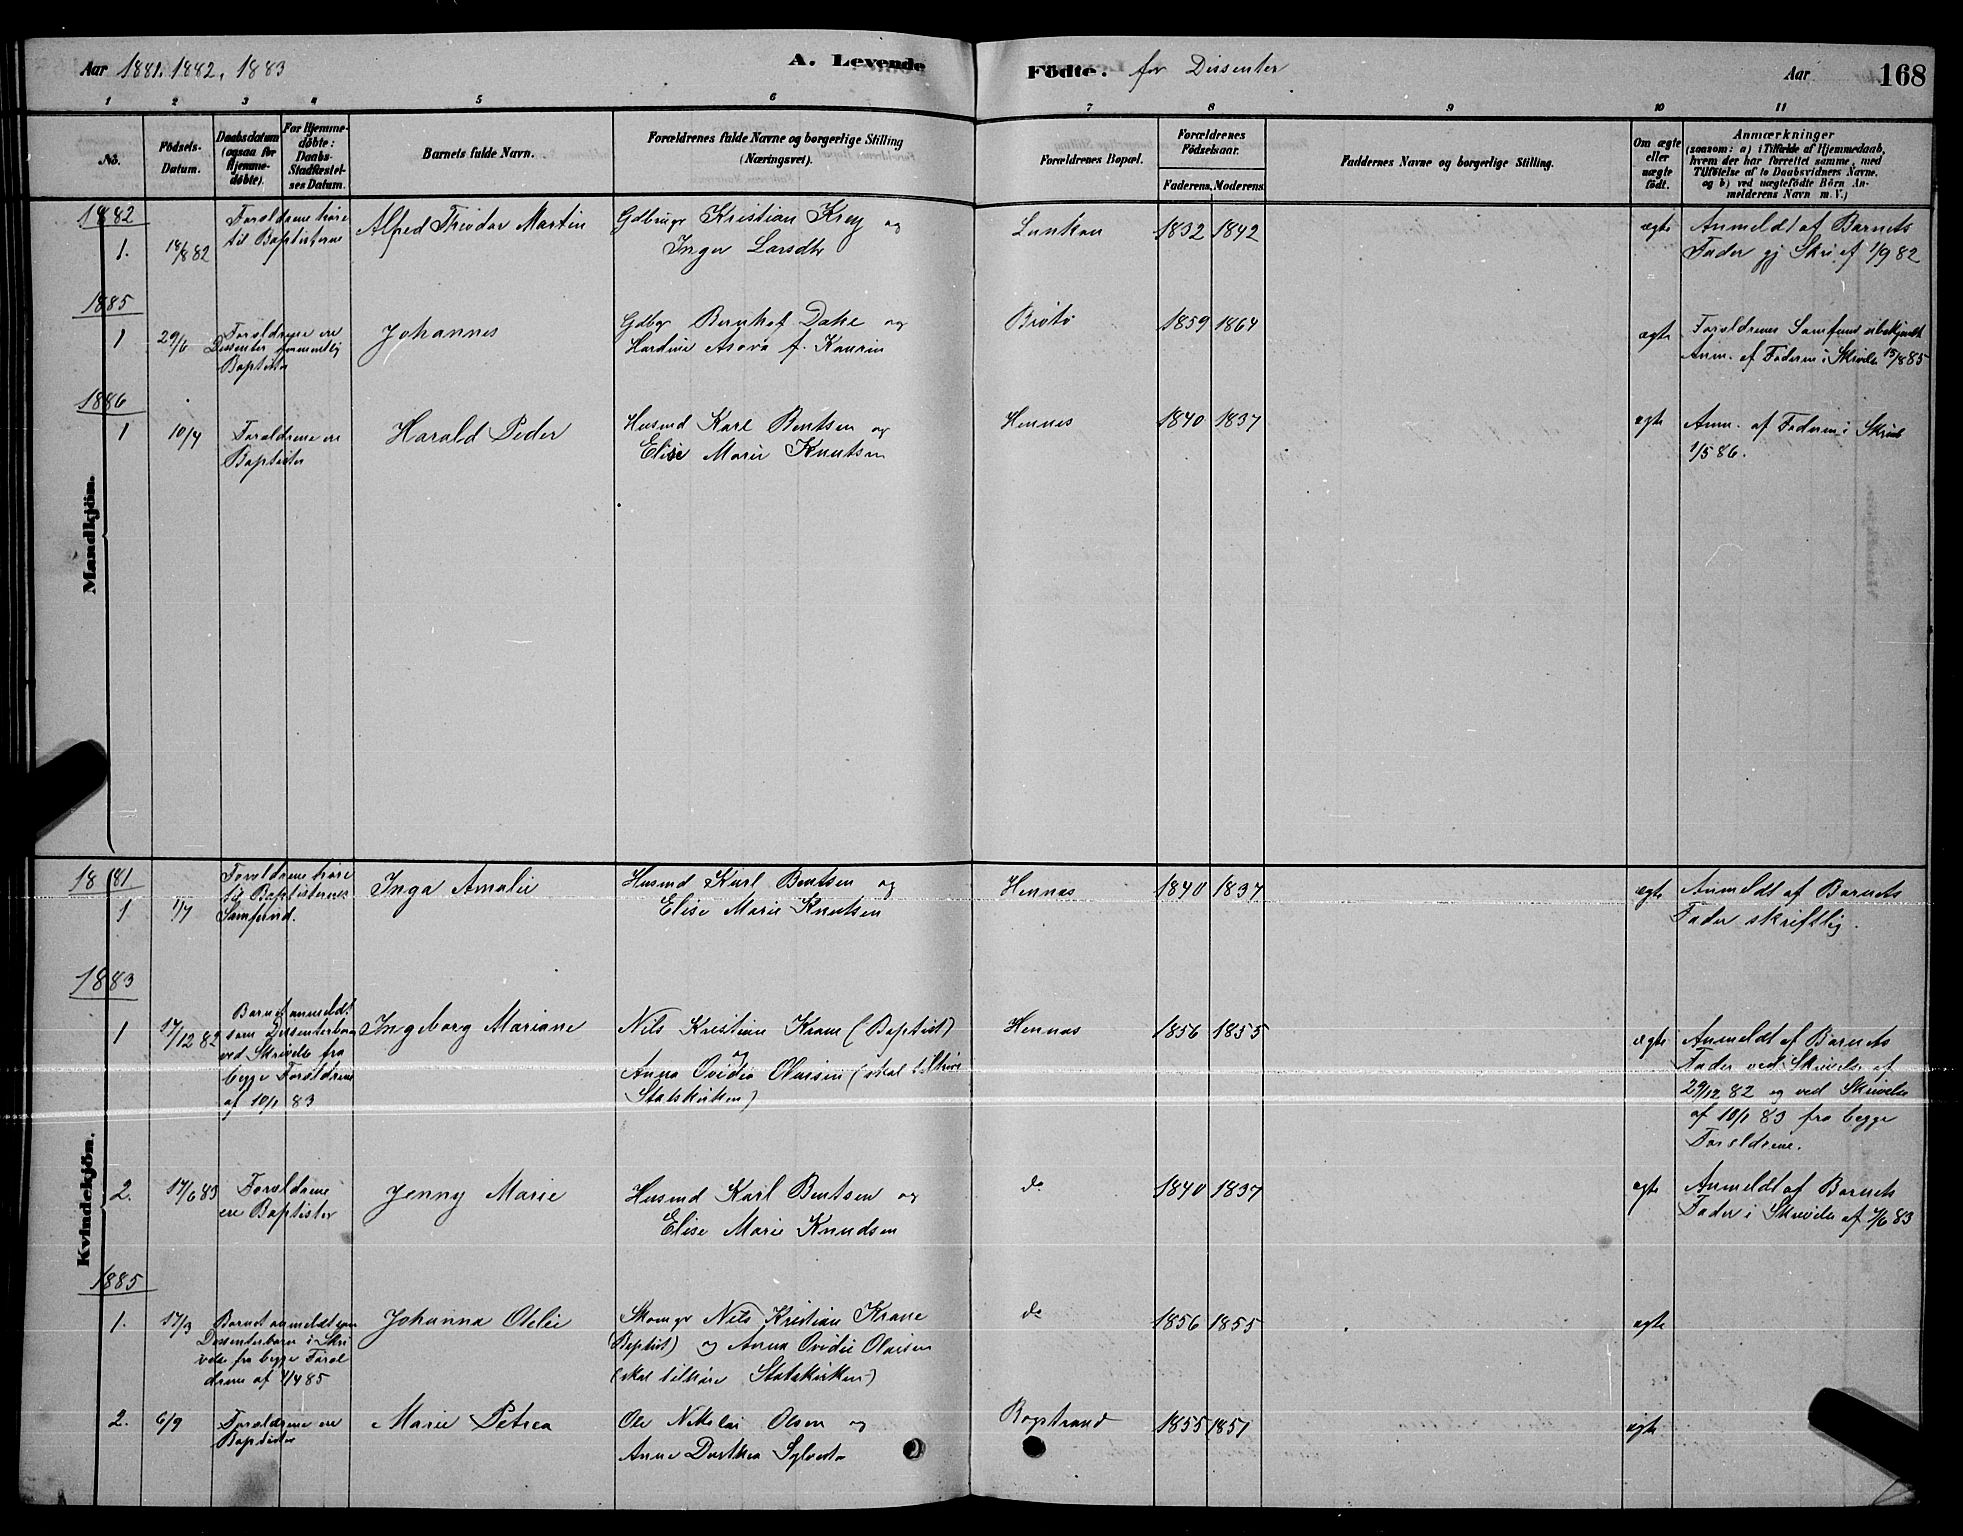 Aar 1881, 1882, 1883
A. Levende Födte. for Dissenter
Aar 168
1 2 3 4 5 6 7 8 9 10 11
No.
Födsels-
Datum.
Daabsdatum
(ogsaa for
Hjemme-
döbte).
For Hjemme-
döbte:
Daabs-
Stadfæstel-
ses Datum.
Barnets fulde Navn.
Forældrenes fulde Navne og borgerlige Stilling
(Næringsvei).
Forældrenes Bopæl.
Forældrenes
Födselsaar.
Faderens. Moderens.
Faddernes Navne og borgerlige Stilling.
Om ægte
eller
uægte
födt.
Anmærkninger
(saasom: a) i Tilfælde af Hjemmedaab,
hvem der har forrettet samme, med
Tilföielse af to Daabsvidners Navne,
og b) ved uægtefödte Börn An-
melderens Navn m. V.)
Mandkjön.
1882
1. 18/8 82
Forældrene höre
til Baptisterne
Alfred Theodor Martin
Gdbruger Kristian Krey og
Inger Larsdtr
Lunkan
1832 1842
ægte
Anmeldt af Barnets
Fader gj Skri af 1/9 82
1885
1 29/6
Forældrene ere
Dissenter formentlig
Baptister
Johannes
Gdbgr Bernhof Dahe og
Hardine Asora f. Kaurin
Brotö
1859 1864
ægte
Forældrenes Samfund ubekjendt
Anm. af Faderen i Skrivelse 15/8 85
1886
1 10/4
Forældrene ere
Baptister
Harald Peder
Husmd Karl Bentsen og
Elise Marie Knutsen
Hennes
1840 1837
ægte
Anm. af Faderen i Skriv
1/5 86.
Kvindekjön.
1881
1 1/7
Forældrene höre
til Baptisternes
Samfund.
Inga Amalie
Husmd Karl Bentsen og
Elise Marie Knutsen
Hennes
1840 1837
ægte
Anmeldt af Barnets
Fader skriftlig.
1883
1 17/12 82
Barnet anmeldt
som Dissenterbarn
ved Skrivelse fra
begge Forældrene
af 10/1 83
Ingeborg Mariane
Nils Kristian Krane (Baptist)
og
Anna Ovidia Olaisen (skal tilhöre
Statskirken)
Hennes
1856 1855
ægte
Anmeldt af Barnets
Fader ved Skrivelse af
29/12 82 og ved Skrivelse
af 10/1 83 fra begge
Forældrene.
2. 17/6 83
Forældrene
ere Baptister
Jenny Marie
Husmd Karl Bentsen og
Elise Marie Knudsen
do
1840 1837
ægte
Anmeldt af Barnets
Fader i Skrivelse af /6 83
1885
1. 17/3
Barnet anmeldt som
Dissenterbarn i Skri
velse fra begge Foræl
drene af 4/4 85
Johanna Otelie
Skomgr Nils Kristian Krane
Baptist) og Anna Ovidie Olaisen
(skal tilhöre Statskirken)
do
1856 1855
ægte
2. 6/9
Forældrene ere
Baptister
Marie Petrea
Ole Nikolai Olsen og
Anne Dorthea
Bogstrand
1855 1851
ægte